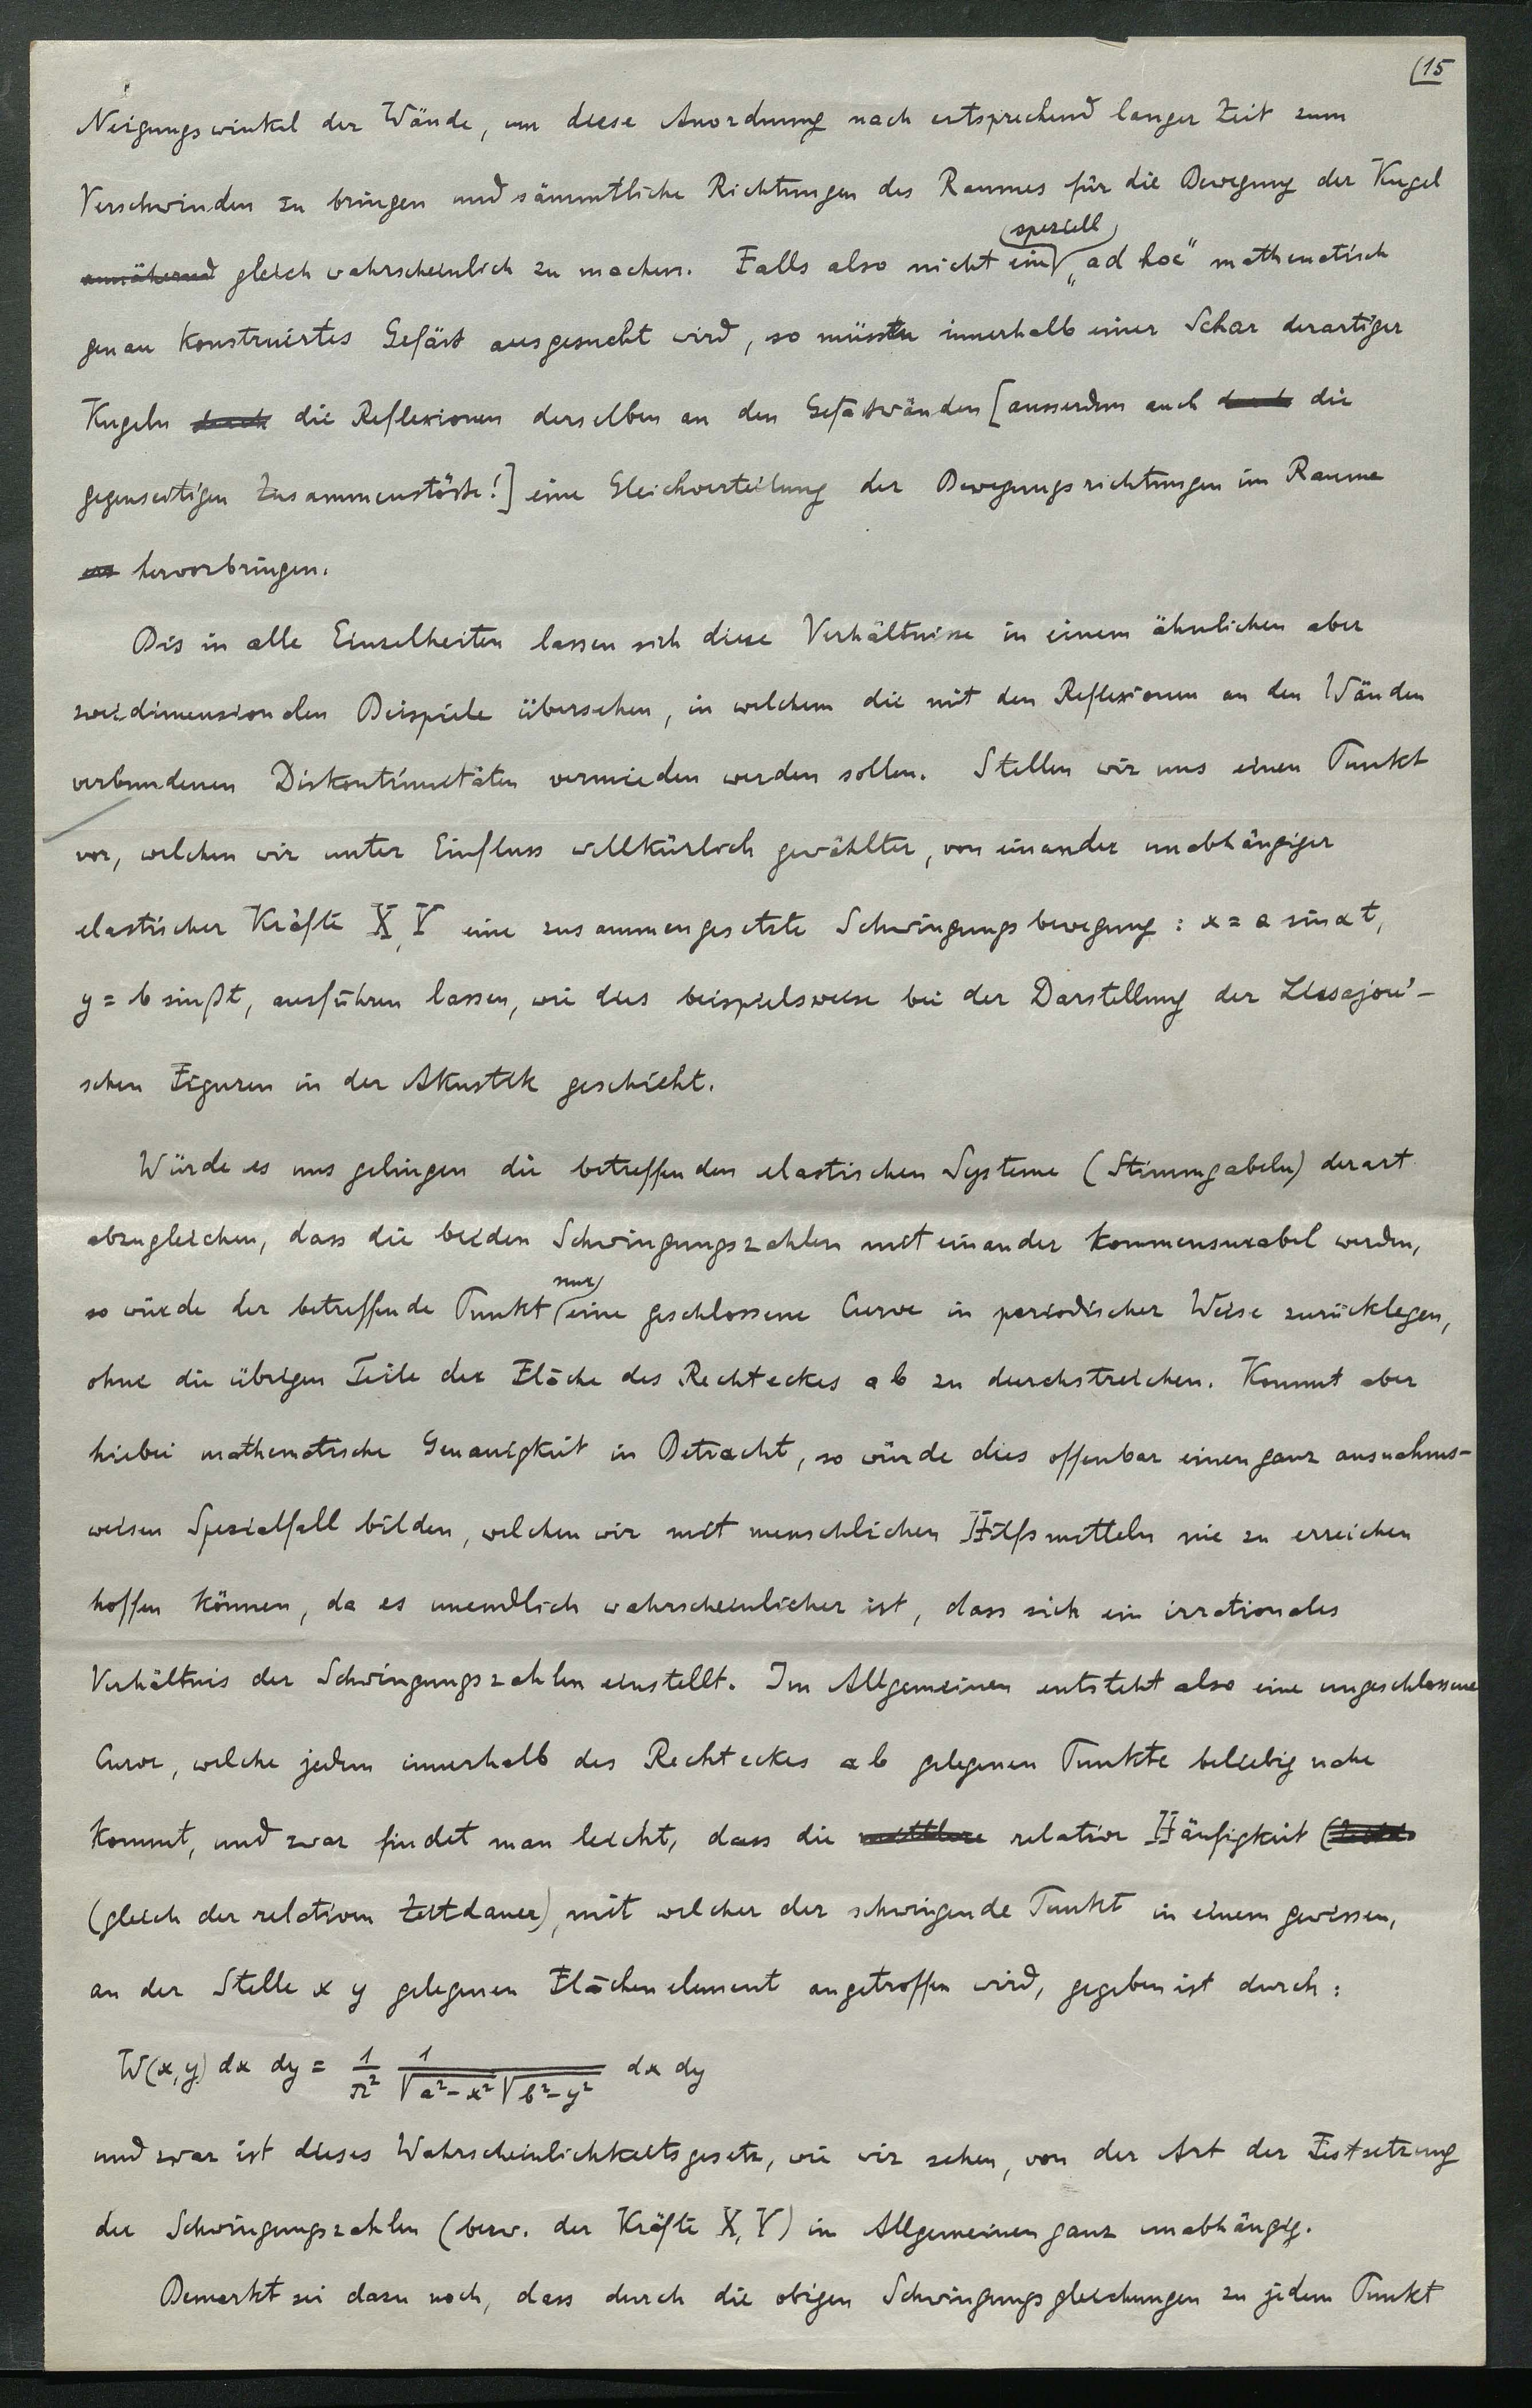 (15
Neigungswinkel der Wände, um diese Anordnung nach entsprechend langer Zeit zum
Verschwinden zu bringen und sämmtliche Richtungen des Raumes für die Bewegung der Kugel
annähernd gleich wahrscheinlich zu machen. Falls also nicht ein speziell „ad hoc" mathematisch
genau konstruiertes Gefäss ausgesucht wird, so müssten innerhalb einer Schar derartiger
Kugeln durch die Reflexionen derselben an den Gefässwänden [ausserdem auch durch die
gegenseitigen Zusammenstösse!] eine Gleichverteilung der Bewegungsrichtungen im Raume
hervorbringen.
Bis in alle Einzelheiten lassen sich diese Verhältnisse in einem ähnlichen aber
zweidimensionalen Beispiele übersehen, in welchem die mit den Reflexionen an den Wänden
verbundenen Diskontinuitäten vermieden werden sollen. Stellen wir uns einen Punkt
vor, welchen wir unter Einfluss willkürlich gewählter, von einander unabhängiger
elastischer Kräfte X, Y eine zusammengesetzte Schwingungsbewegung: x = a sin αt,
y = b sin βt, ausführen lassen, wie dies beispielsweise bei der Darstellung der Lissajou'-
schen Figuren in der Akustik geschieht.
Würde es uns gelingen die betreffenden elastischen Systeme (Stimmgabeln) derart
abzugleichen, dass die beiden Schwingungszahlen mit einander kommensurabel werden,
so würde der betreffende Punkt nur eine geschlossene Curve in periodischer Weise zurücklegen,
ohne die übrigen Teile der Fläche des Rechteckes a b zu durchstreichen. Kommt aber
hiebei mathematische Genauigkeit in Betracht, so würde dies offenbar einen ganz ausnahms-
weisen Spezialfall bilden, welchen wir mit menschlichen Hilfsmitteln nie zu erreichen
hoffen können, da es unendlich wahrscheinlicher ist, dass sich ein irrationales
Verhältnis der Schwingungszahlen einstellt. Im Allgemeinen entsteht also eine ungeschlossene
Curve, welche jedem innerhalb des Rechteckes a b gelegenen Punkte beliebig nahe
kommt, und zwar findet man leicht, dass die mittlere relative Häufigkeit
(gleich der relativen Zeitdauer), mit welcher der schwingende Punkt in einem gewissen,
an der Stelle x y gelegenen Flächenelement angetroffen wird, gegeben ist durch:
W(x, y) dx dy = 1/π² 1/(√a²-x² √b²-y²) dx dy
und zwar ist dieses Wahrscheinlichkeitsgesetz, wie wir sehen, von der Art der Festsetzung
der Schwingungszahlen (bezw. der Kräfte X, Y) im Allgemeinen ganz unabhängig.
Bemerkt sei dazu noch, dass durch die obigen Schwingungsgleichungen zu jedem Punkt